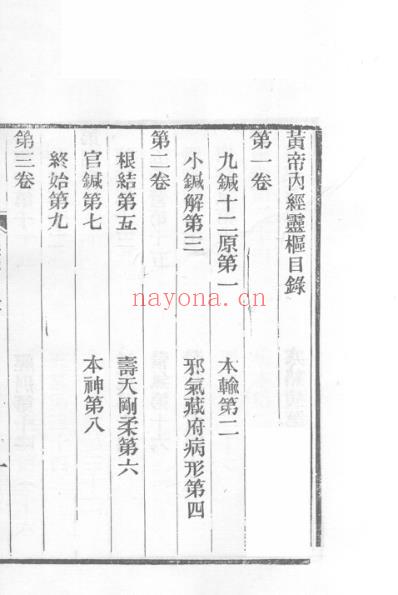 黃帝內經靈樞目錄
第一卷
九鍼十二原第一 本輸第二
小鍼解第三 邪氣藏府病形第四
第二卷
根結第五 壽夭剛柔第六
官鍼第七 本神第八
終始第九
第三卷
一
nayona.cn